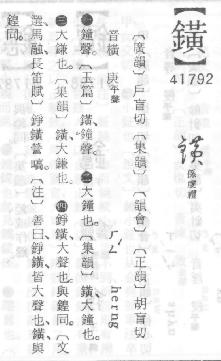 【鐄】
41792
鐄 孫虔禮
〔廣韻〕戶盲切〔集韻〕〔韻會〕〔正韻〕胡盲切
音橫 庚平聲 ㄏㄥˊ herng
㊀鐘聲。〔玉篇〕鐄、鐘聲。㊁大鐘也。〔集韻〕鐄、大鐘也。
㊂大鎌也。〔集韻〕鐄、大鎌也。㊃錚鐄、大聲也、與鍠同。〔文
選、馬融、長笛賦〕錚鐄謍嗃。〔注〕善曰、錚鐄、皆大聲也、鐄、與
鍠同。